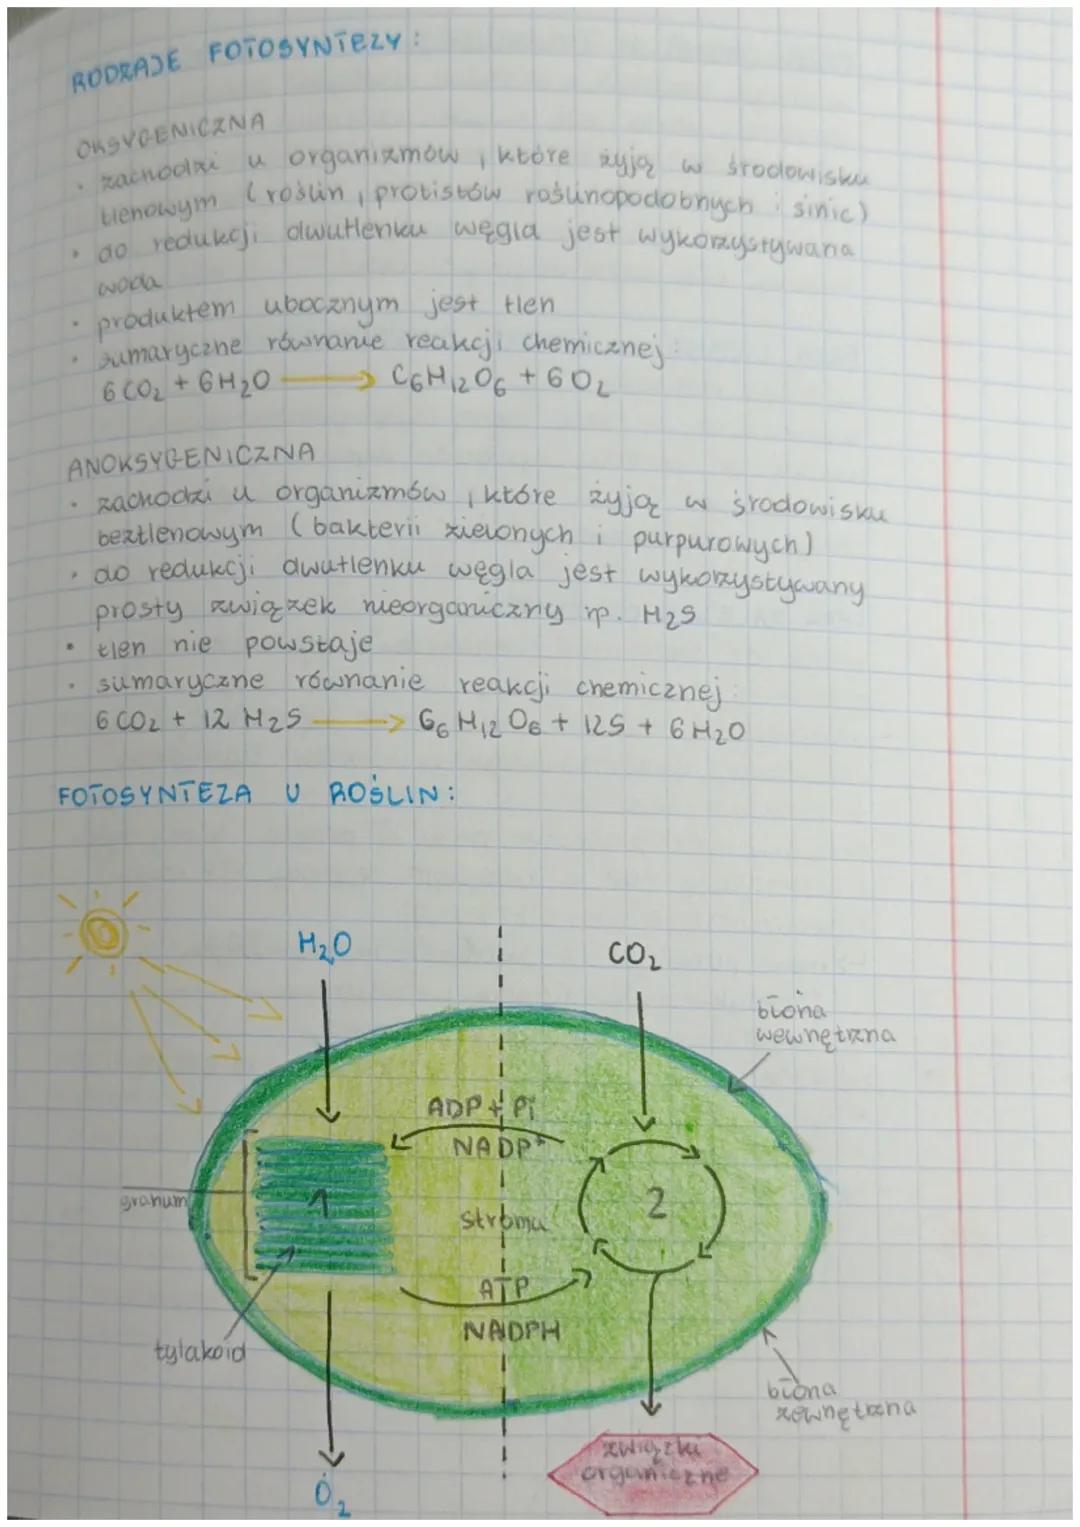 RODZAJE FOTOSYNTEZY:
OKSYGENICZNA
• zachodzi u organizmów, które żyją w środowisku
tlenowym (roślin, protistów roślinopodobnych i sinic)
• do redukcji dwutlenku węgla jest wykorzystywana
woda
• produktem ubocznym jest tlen
• sumaryczne równanie reakcji chemicznej:
6 CO₂ + 6H₂O → C₆H₁₂O₆ + 6O₂
ANOKSYGENICZNA
• zachodzi u organizmów, które żyją w środowisku
beztlenowym (bakterii zielonych i purpurowych)
• do redukcji dwutlenku węgla jest wykorzystywany
prosty związek nieorganiczny np. H₂S
• tlen nie powstaje
• sumaryczne równanie reakcji chemicznej:
6 CO₂ + 12 H₂S → C₆H₁₂O₆ + 12S + 6H₂O
FOTOSYNTEZA U ROŚLIN:
H₂O
CO₂
błona
wewnętrzna
ADP + Pi
NADP⁺
granum
1
stroma
2
ATP
NADPH
tylakoid
błona
zewnętrzna
związki
organiczne
O₂